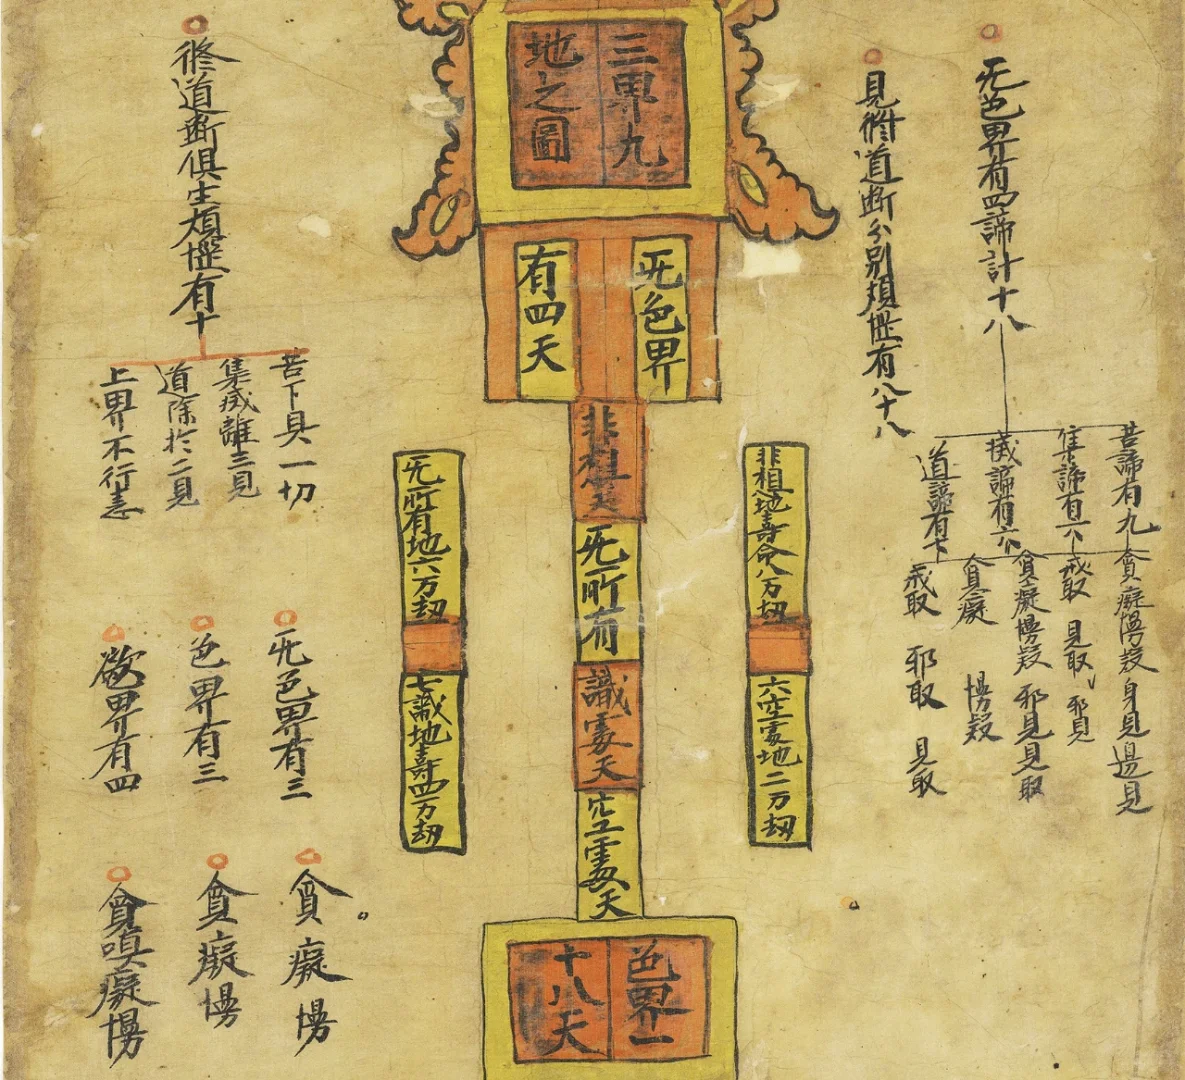 三界九
地之圖
无色界
有四天
非想天
无所有
識處天
空處天
色界一
十八天
无色界有四諦計十八
見修道断分別煩惱有八十八
苦諦有九
集諦有六
滅諦有六
道諦有七
貪癡慢疑 身見 邊見
戒取 見取 邪見
貪癡慢疑 邪見見取
貪癡 慢疑
戒取 邪取 見取
非相地壽命八万劫
六空處地二万劫
无所有地六万劫
七識地壽四万劫
修道断俱生煩惱有十
苦下具一切
集滅離三見
道除於二見
上界不行恚
无色界有三
色界有三
欲界有四
貪癡慢
貪癡慢
貪嗔癡慢